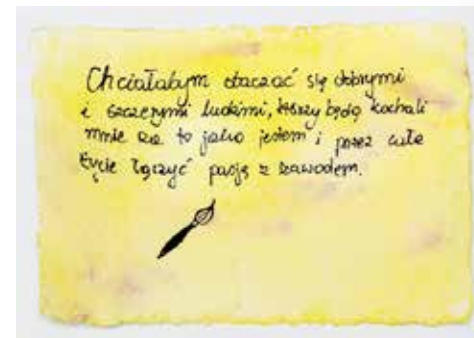 Chciałabym otaczać się dobrymi
i szczerymi ludźmi, którzy będą kochali
mnie za to jaka jestem i przez całe
życie łączyć pasję z zawodem.